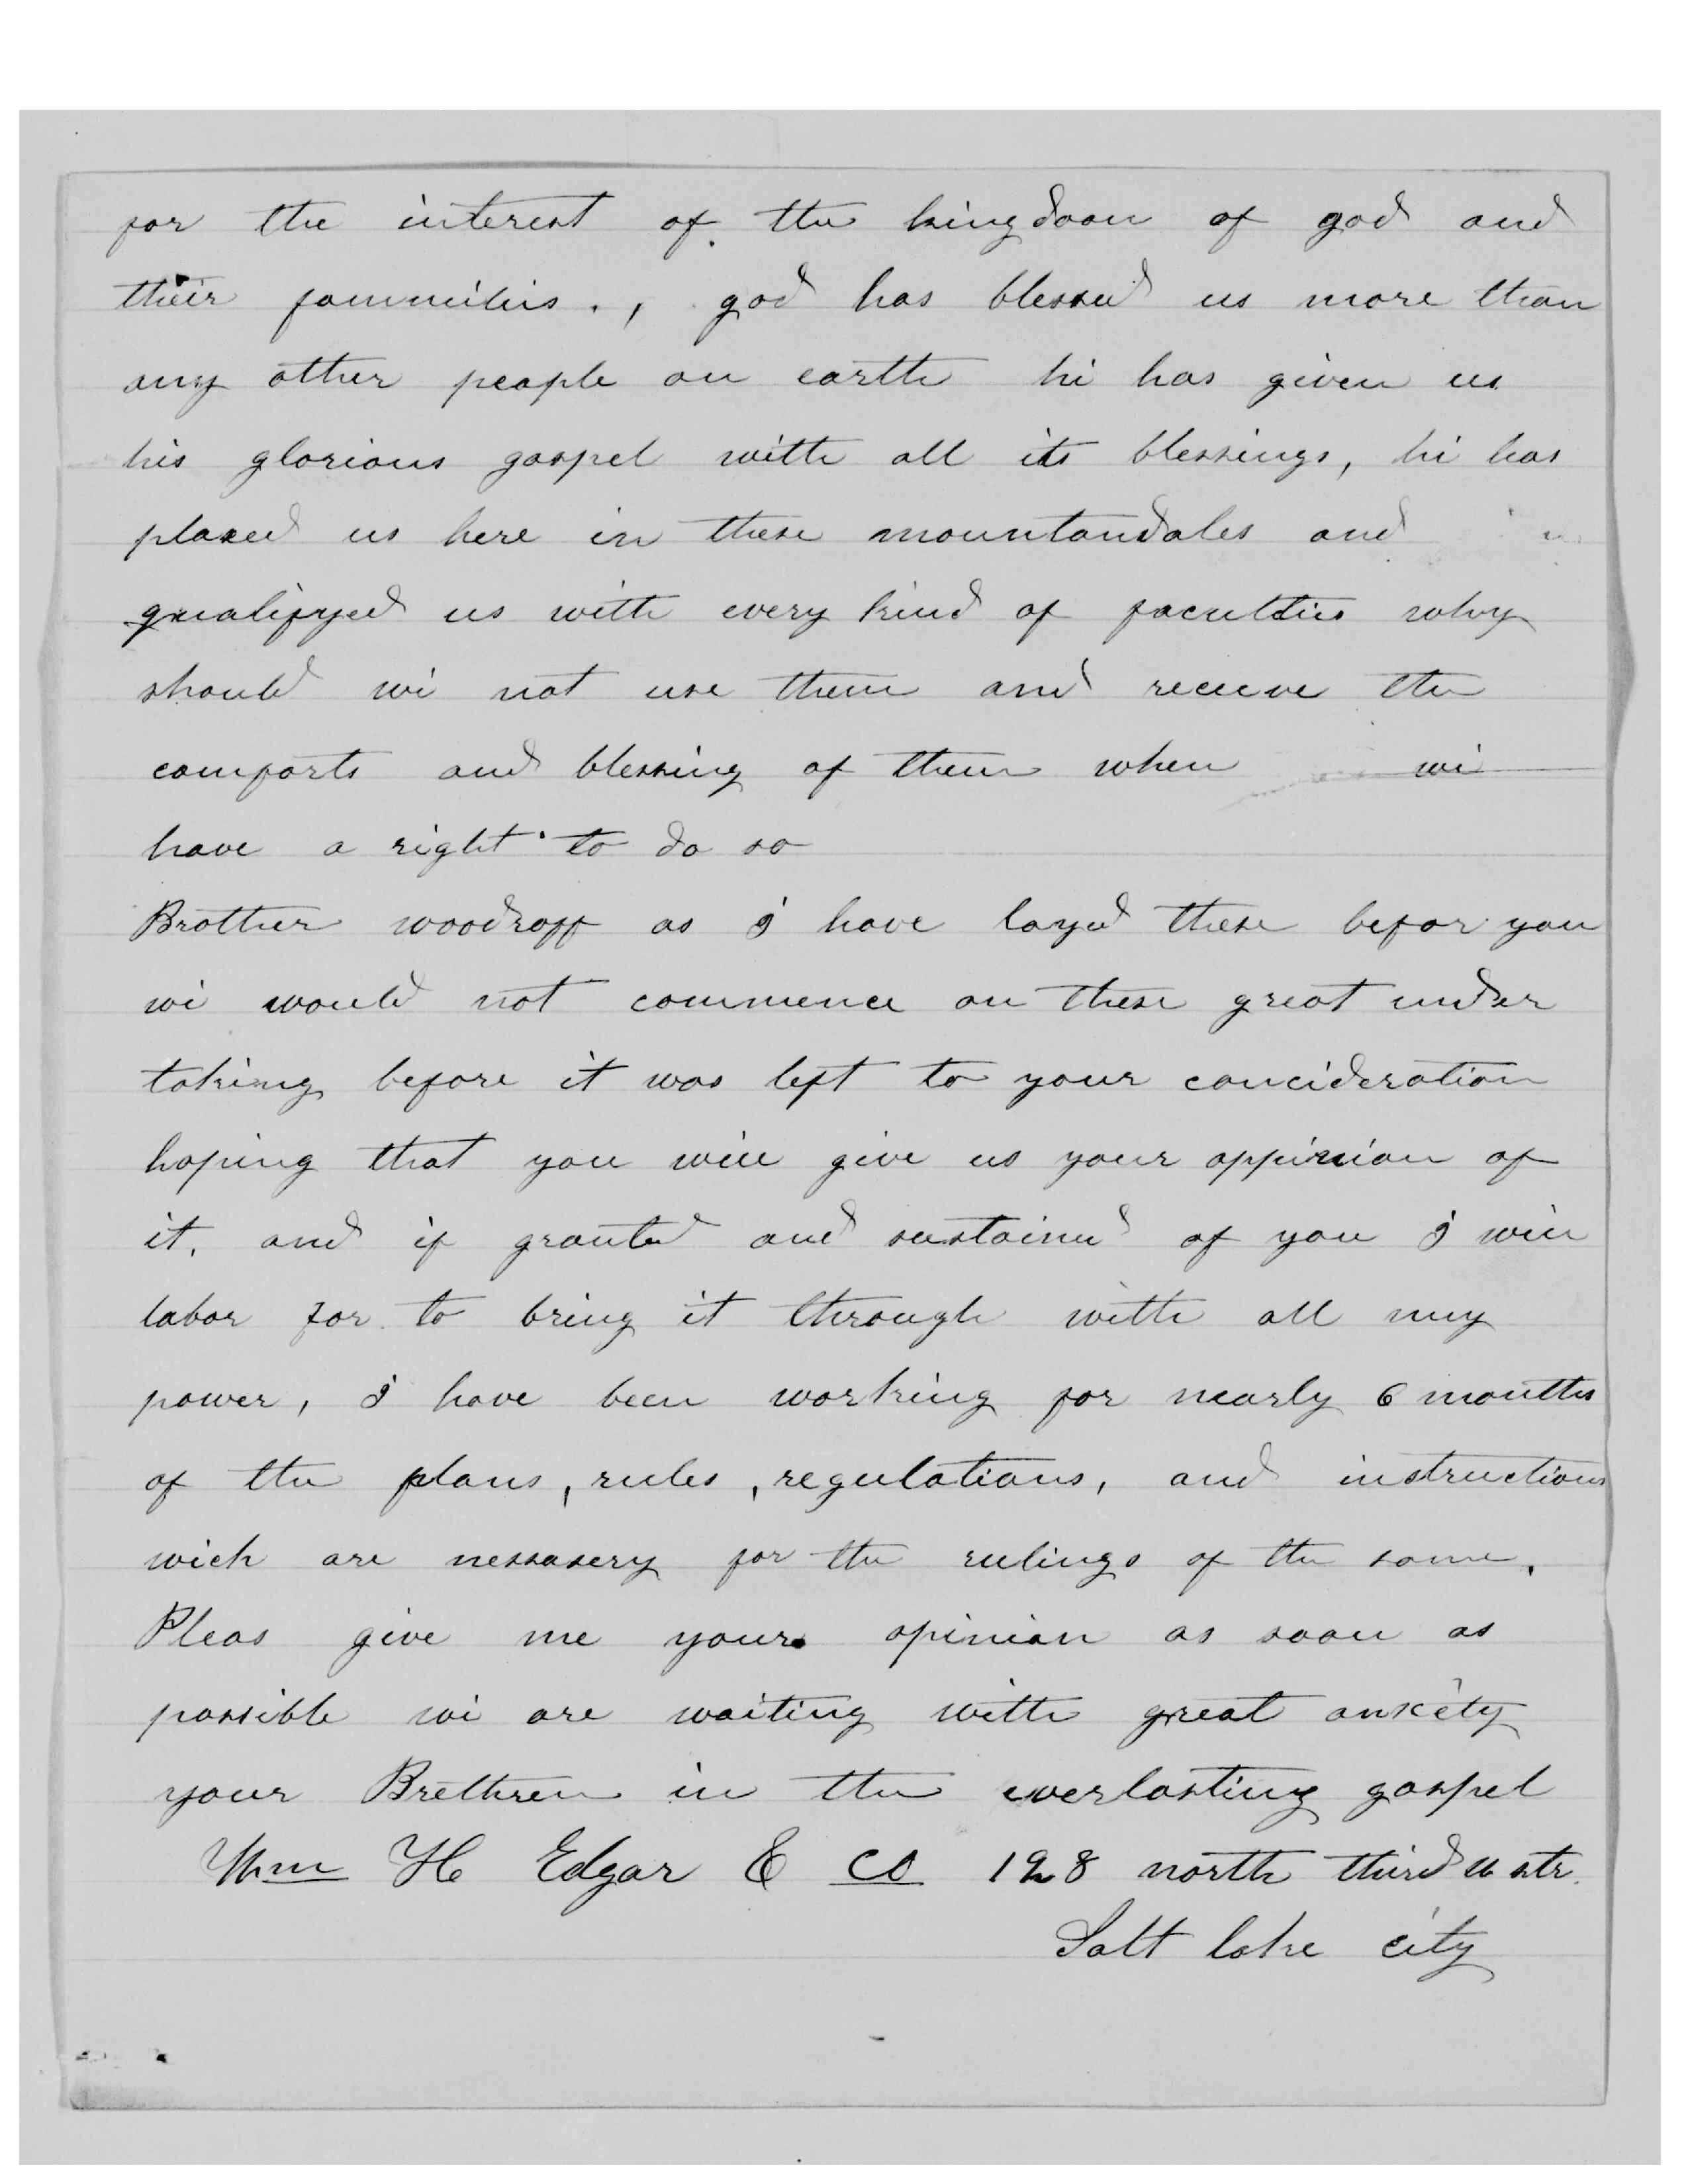 for the interest of the kingdoom of god and
their fammilies., god has blessed us more than
any other people on earth hi has given us
his glorious gospel with all its blessings, hi has
placed us here in these mountandales and
qualifyed us with every kind of faculties why
should wi not use them and receive the
comforts and blessing of them when wi
have a right to do so
Brother woodroff as I have layed these befor you
wi would not commence on these great under
taking before it was left to your concideration
hoping that you will give us your oppinion of
it, and if granted and sustained of you I will
labor for to bring it through with all my
power, I have been working for nearly 6 months
of the plans, rules, regulations, and instructions
wich are nessasery for the rulings of the same.
Pleas give me your opinion as soon as
possible wi are waiting with great anxiety
your Brethren in the everlasting gospel
Wm H Edgar & co 128 north third w str.
Salt lake city